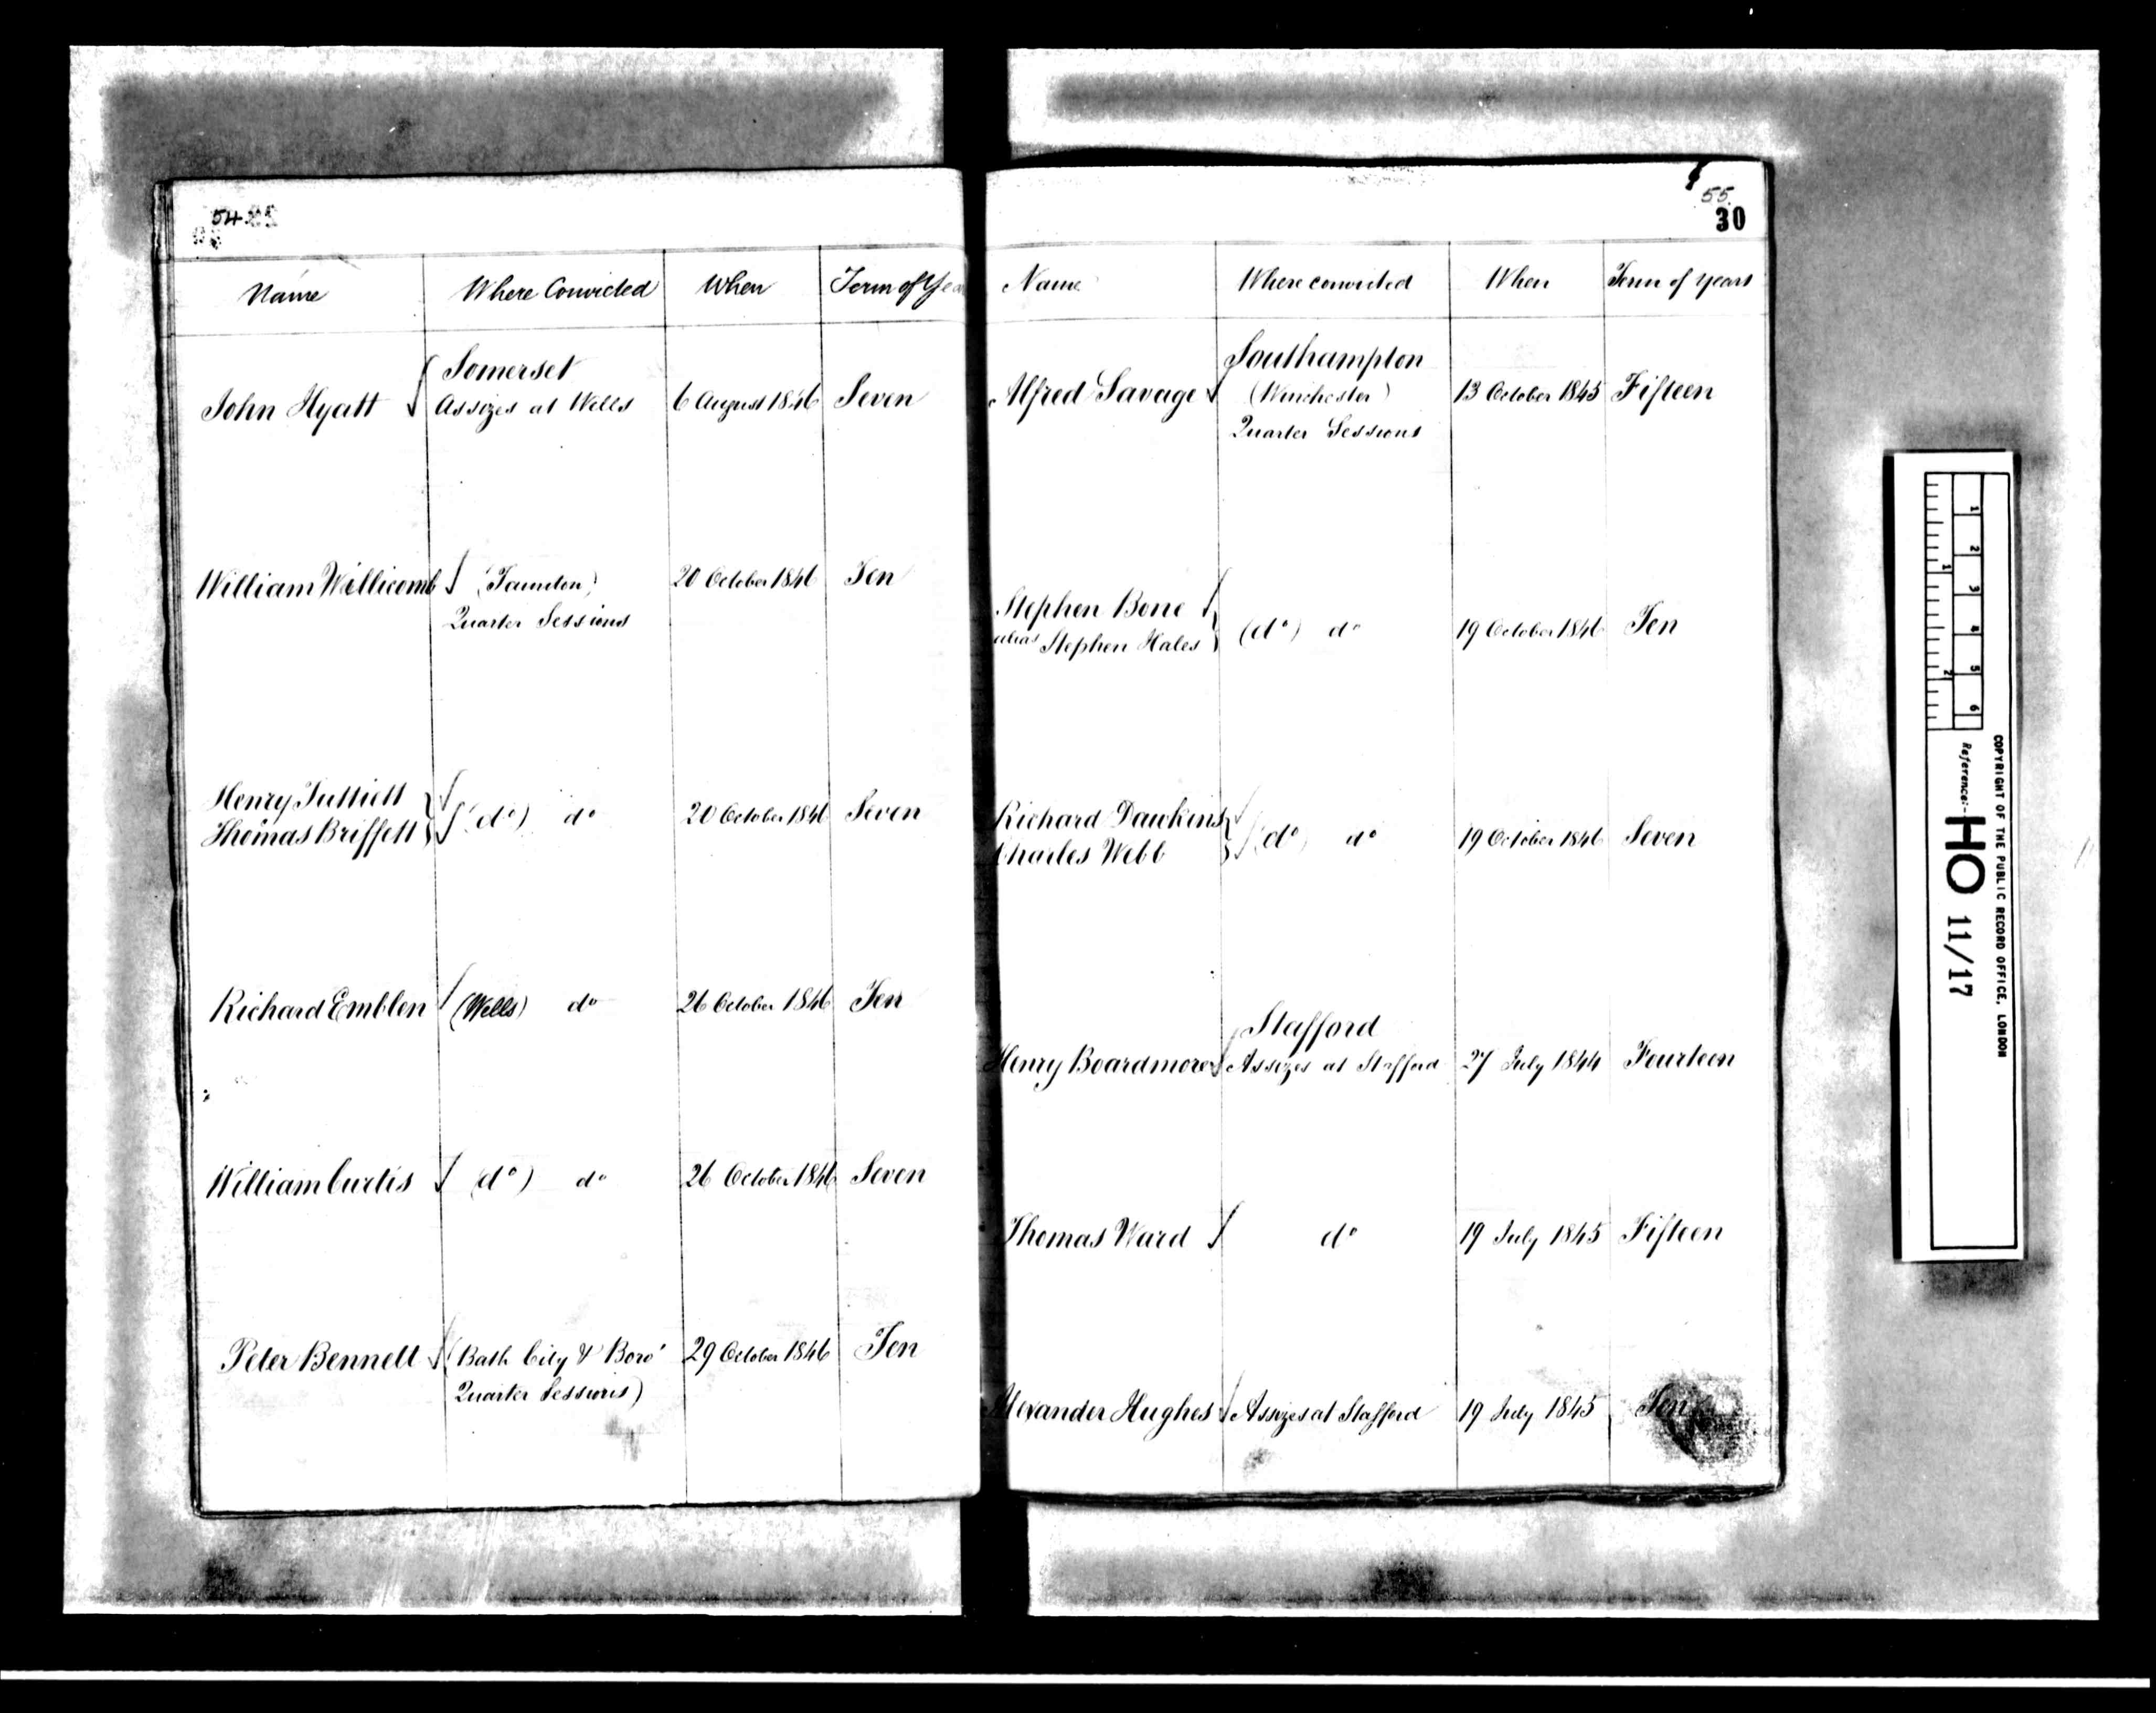 54
Name Where Convicted When Term of Yea
Somerset
John Hyatt Assizes at Wells 6 August 1846 Seven
William Willicomb (Taunton) 20 October 1846 Ten
Quarter Sessions
Henry Tuttiett
Thomas Briffett (do) do 20 October 1846 Seven
Richard Emblen (Wells) do 26 October 1846 Ten
William Curtis (do) do 26 October 1846 Seven
Peter Bennett (Bath City & Boro' 29 October 1846 Ten
Quarter Sessions)
55
30
Name Where convicted When Term of years
Southampton
Alfred Savage (Winchester) 13 October 1845 Fifteen
Quarter Sessions
Stephen Bone
alias Stephen Hales (do) do 19 October 1846 Ten
Richard Dawkins
Charles Webb (do) do 19 October 1846 Seven
Stafford
Henry Boardmore Assizes at Stafford 27 July 1844 Fourteen
Thomas Ward do 19 July 1845 Fifteen
Alexander Hughes Assizes at Stafford 19 July 1845 Ten
1 2 3 4 5 6
1 2
COPYRIGHT OF THE PUBLIC RECORD OFFICE, LONDON
Reference:- HO 11/17